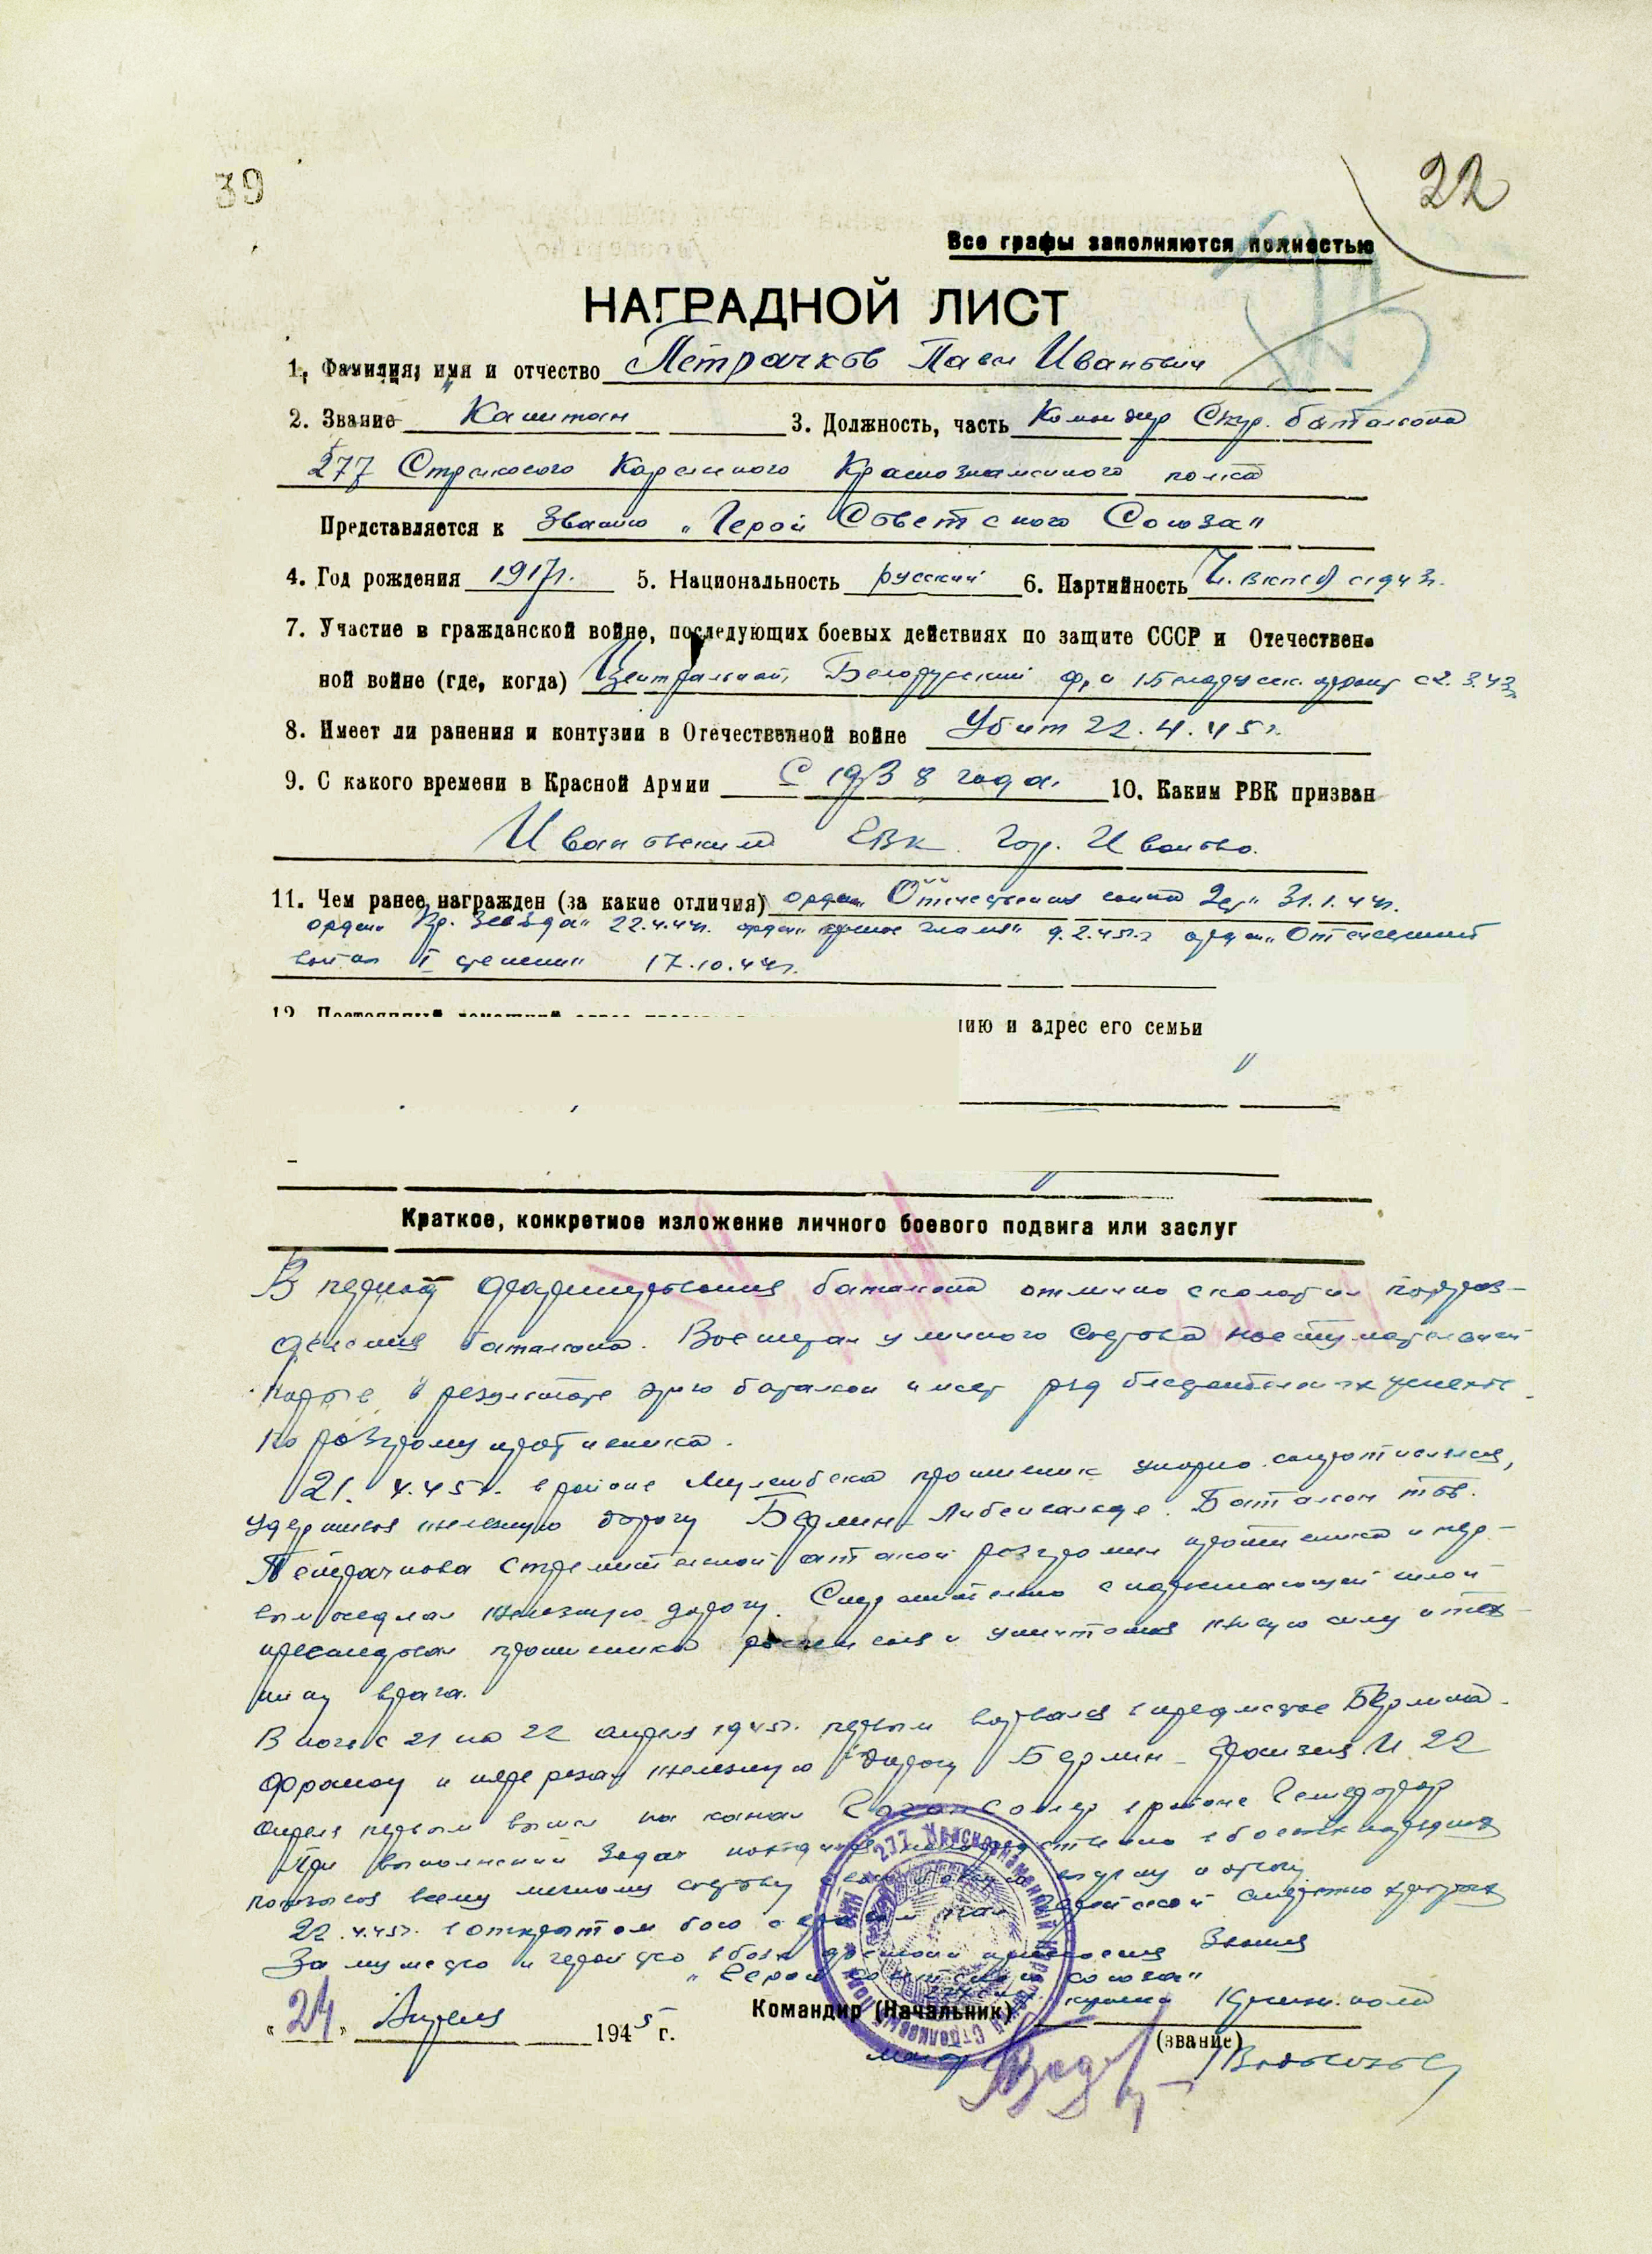 39
22
Все графы заполняются полностью
НАГРАДНОЙ ЛИСТ
1. Фамилия, имя и отчество Петрачков Павел Иванович
2. Звание Капитан 3. Должность, часть Командир Стр. батальона
277 Стрелкового Карельского Краснознаменного полка
Представляется к званию „Герой Советского Союза"
4. Год рождения 1917г. 5. Национальность русский 6. Партийность Чл. ВКП(б) с 1943г.
7. Участие в гражданской войне, последующих боевых действиях по защите СССР и Отечествен-
ной войне (где, когда) Центральный, Белорусский ф, и 1 Белорусск. фронт с 2.3.43г
8. Имеет ли ранения и контузии в Отечественной войне Убит 22.4.45г.
9. С какого времени в Красной Армии С 1938 года. 10. Каким РВК призван
Ивановским ГВК. Гор. Иваново.
11. Чем ранее награжден (за какие отличия) орден „Отечественная война 2ст" 31.1.44г.
орден „Кр. Звезда" 22.4.44г. орден „Красное знамя" 9.2.45г. орден „Отечественной
война I степени" 17.10.44г.
12.
нию и адрес его семьи
Краткое, конкретное изложение личного боевого подвига или заслуг
В период формирования батальона отлично сколотил подраз-
деления батальона. Воспитал у личного состава наступательный
порыв, в результате чего батальон имеет ряд блестательных успехов
по разгрому противника.
21.4.45г. в районе противник упорно сопротивлялся,
удерживая железную дорогу Берлин - Либенвальде. Батальон тов.
Петрачкова стремительной атакой разгромил противника и пер-
вым оседлал железную дорогу. Следовательно с нарастающей силой
преследовал противника рассеивая и уничтожая живую силу и тех-
нику врага.
В ночь с 21 на 22 апреля 1945г. первым ворвался в предместье Берлина -
и перерезал железную дорогу Берлин - И 22
апреля первым вышел на канал в районе
При выполнении задач находился непосредственно в боевых порядках
показывая всему личному составу и отвагу
22.4.45г. в открытом бою с врагом пал геройской смертью храбрых
За мужество и геройство в боях достоин присвоения звания
„Герой Советского Союза"
277 Краснознаменный Карельский Стрелковый Полк
„24" Апреля 1945 г.
Командир (Начальник) полка
(звание)
майор